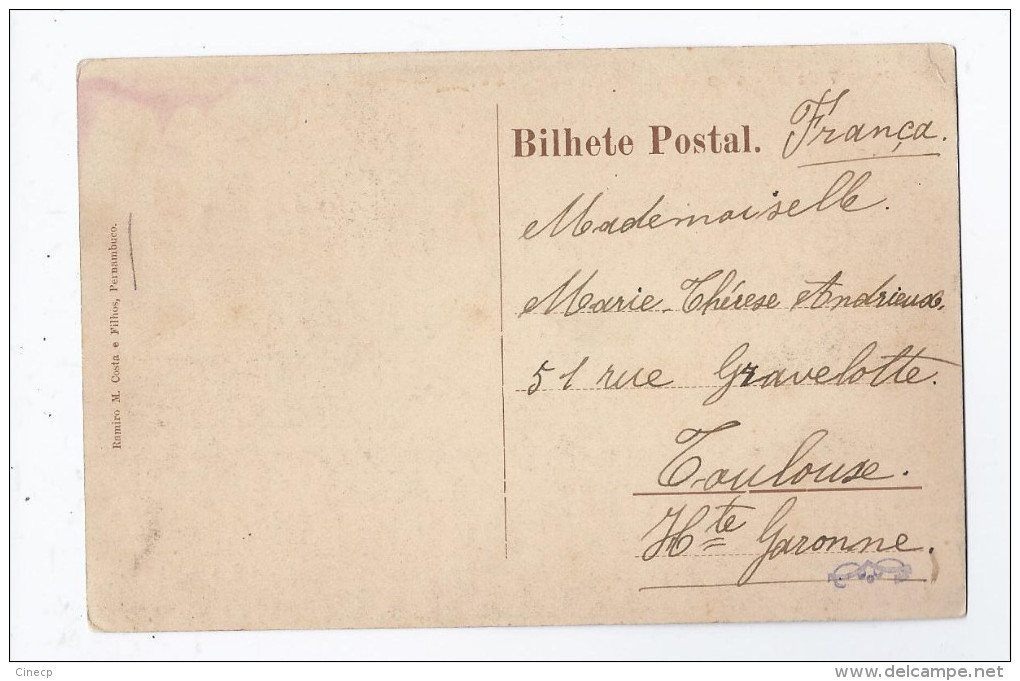 Bilhete Postal. França.
Mademoiselle.
Marie-Thérese Andrieux.
51 rue Gravelotte.
Toulouse.
Hte Garonne.
Ramiro M. Costa e Filhos, Pernambuco.
Cinecp
www.delcampe.net